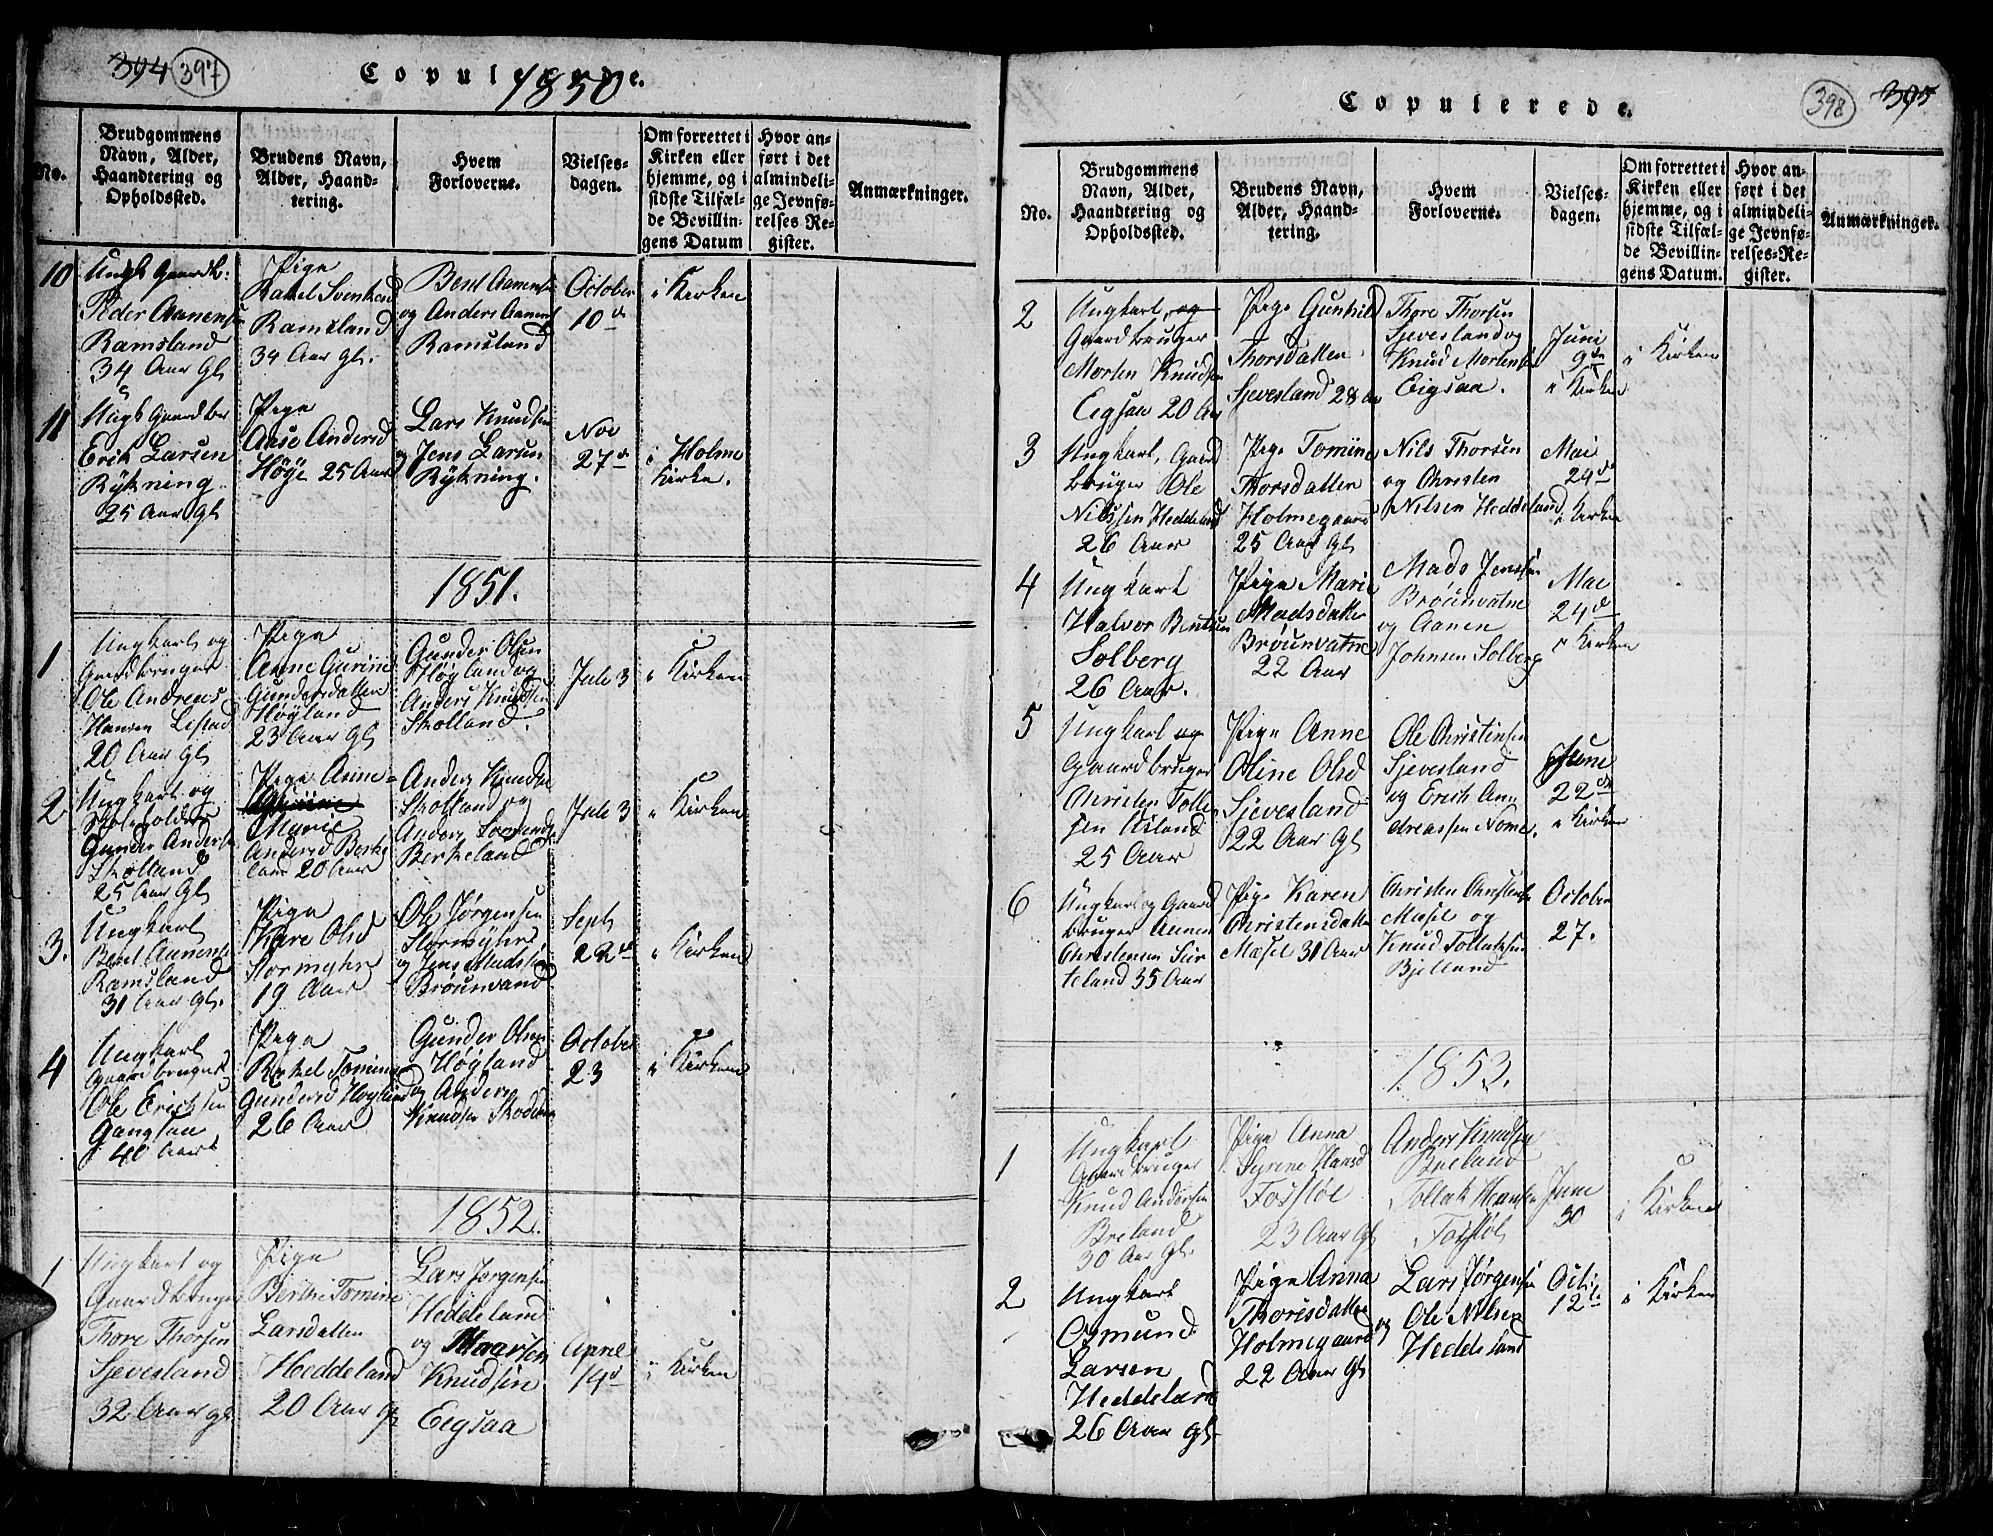 394 397
Copulerede.
1850
No.
Brudgommens
Navn, Alder,
Haandtering og
Opholdssted.
Brudens Navn,
Alder, Haand-
tering.
Hvem
Forloverne.
Vielses-
dagen.
Om forrettet i
Kirken eller
hjemme, og i
sidste Tilfæl-
de Bevillin-
gens Datum
Hvor an-
ført i det
almindeli-
ge Jevnfø-
relses-Re-
gister.
Anmærkninger.
10
Ungk Gaardb:
Peder Aanensen
Ramsland
34 Aar Gl
Pige
Rakel Svensd
Ramsland
34 Aar Gl.
Bent Aanensen
og Anders Aanens
Ramsland
October
10de
i Kirken
11
Ungk Gaardbr
Erik Larsen
Rykning
25 Aar Gl
Pige
Aase Andersd
Høye 25 Aar
Lars Knudsen
og Jens Larsen
Rykning.
Nov
27d
i Holme
Kirke.
1851.
1
Ungkarl og
Gaardbruger
Ole Andreas
Hansen Listad
20 Aar Gl
Pige
Anne Gurine
Gundersdatter
Høyland
23 Aar Gl
Gunder Olsen
Høyland og
Anders Knudsen
Skolland.
Jule 3
i Kirken
2
Ungkarl og
Skoleholder
Gunder Andersen
Skolland
25 Aar Gl
Pige Anne
Marie
Andersd Berke
land 20 Aar
Anders Knudsen
Skolland og
Anders
Berkeland
Jule 3
i Kirken
3.
Ungkarl
Bent Aanensen
Ramsland
31 Aar Gl.
Pige
Kare Olsd
Stormyhr
19 Aar
Ole Jørgensen
Stormyhr
og Jens Madsen
Brøunvand
Sept
22de
i Kirken
4
Ungkarl
Gaardbruger
Ole Ericksen
Gangsaa
40 Aar
Pige
Rakel Tomine
Gundersd Høyland
26 Aar
Gunder Olsen
Høyland
og Anders
Knudsen
October
23
i Kirken
1852.
1
Ungkarl og
Gaardbruger
Thore Thorsen
Sjevesland
32 Aar gl
Pige
Berthe Tomine
Larsdatter
Heddeland
20 Aar gl
Lars Jørgensen
Heddeland
og
Knudsen
Eegsaa
14d
i Kirken
Copulerede.
398 395
No.
Brudgommens
Navn, Alder,
Haandtering og
Opholdssted.
Brudens Navn,
Alder, Haand-
tering.
Hvem
Forloverne.
Vielses-
dagen.
Om forrettet i
Kirken eller
hjemme, og i
sidste Tilfæl-
de Bevillin-
gens Datum.
Hvor an-
ført i det
almindeli-
ge Jevnfø-
relses-Re-
gister.
Anmærkninger.
2
Ungkarl og
Gaardbruger
Morten Knudsen
Eigsaa 20 Aar
Pige Gunhild
Thorsdatter
Sjevesland 28 Aar
Thore Thorsen
Sjevesland og
Knud Mortensen
Eigsaa.
Juni
9de
i Kirken
i Kirken
3
Ungkarl, Gaard
bruger Ole
Nilssen Heddeland
26 Aar
Pige Tomine
Thorsdatter
Holmegaard
25 Aar Gl
Nils Thorsen
og Christen
Nilsen Heddeland
Mai
24de
i Kirken
4
Ungkarl
Halvor Bentsen
Solberg
26 Aar.
Pige Marie
Madsdatter
Brøunvatne
22 Aar
Mads Jenssen
Brøunvatne
og Aanen
Johnsen Solberg
Mai
24d
i Kirken
5
Ungkarl og
Gaardbruger
Christen Tolle
sen Usland
25 Aar
Pige Anne
Oline Olsd
Sjevesland
22 Aar Gl
Ole Christensen
Sjevesland
og Erich An
dreassen Nome.
June
22de
i Kirken
6
Ungkarl og Gaard
bruger Aanen
Christensen
teland 35 Aar
Pige Karen
Christensdatter
Møsel 31 Aar
Christen Christensen
Møsel og
Knud Tollaksen
Bjelland
October
27.
1853.
1
Ungkarl
Gaardbruger
Knud Andersen
Breland
30 Aar Gl.
Pige Anna
Syrine Hansd
Fosstøl
23 Aar Gl
Anders Knudsen
Breland
Tollak Hansen
Fosstøl
June
30
i Kirken
2
Ungkarl
Osmund
Larsen
Heddeland
26 Aar gl.
Pige Anna
Thorisdatter
Holmegaard
22 Aar Gl
Lars Jørgensen
og Ole Nilsen
Heddeland
12te
i Kirken